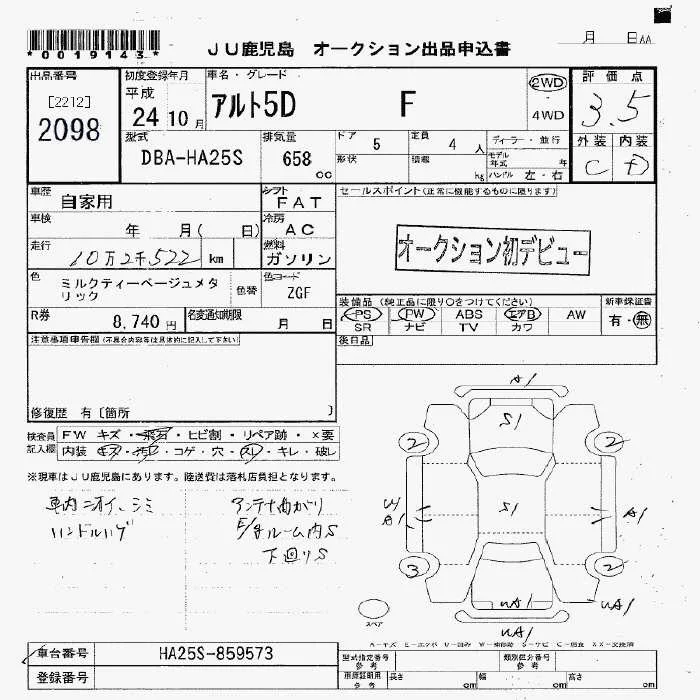 *0019143*
JU鹿児島 オークション出品申込書
月 日AA
出品番号
[2212]
2098
初度登録年月
平成
24 10 月
車名・グレード
アルト5D F
2WD
・
4WD
評価点
3.5
外装 内装
C D
型式
DBA-HA25S
排気量
658
cc
ドア 5
定員 4 人
形状
積載 kg
ディーラー・並行
モデル
年式 年
ハンドル 左・右
車歴
自家用
シフト
FAT
車検
年 月( 日)
冷房
AC
走行
10万2千522 km
燃料
ガソリン
色
ミルクティーベージュメタ
リック
色替
色コード
ZGF
R券
8,740 円
名変通知期限
月 日
セールスポイント(正常に機能するものに限ります)
オークション初デビュー
装備品(純正品に限り○をつけてください)
PS PW ABS エアB AW
SR ナビ TV カワ
新車保証書
有・無
後日品
注意事項申告欄(不具合内容等は具体的に記入して下さい)
修復歴 有〔箇所 〕
検査員
記入欄
FW キズ・飛石・ヒビ割・リペア跡・×要
内装 キズ・汚れ・コゲ・穴・スレ・キレ・破レ
※現車はJU鹿児島にあります。陸送費は落札店負担となります。
車内ニオイ、シミ
ハンドルハゲ
アンテナ曲がり
E/gルーム内S
下廻りS
A1
S1
2 2
S1
W
A1
A1
3 2
WA1
WA1
UA1
スペア
車台番号 HA25S-859573
登録番号
型式指定番号
参考
類別区分番号
参考
車庫証明用
参考
長さ cm
幅 cm
高さ cm